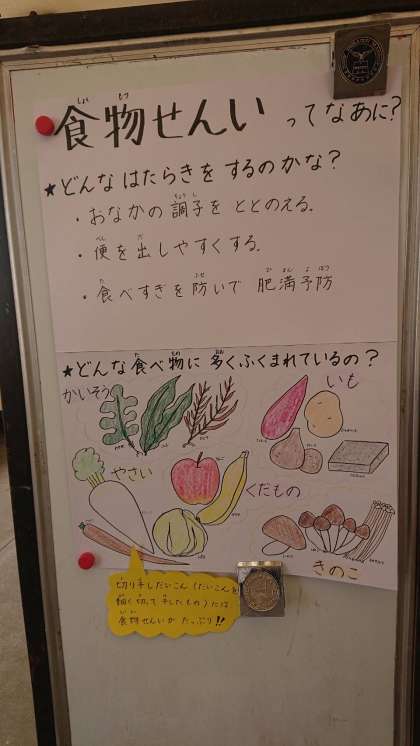 食物せんいってなあに？
★どんなはたらきをするのかな？
・おなかの調子をととのえる。
・便を出しやすくする。
・食べすぎを防いで 肥満予防
★どんな食べ物に多くふくまれているの？
かいそう
いも
やさい
くだもの
きのこ
切り干しだいこん（だいこんを
細く切って干したもの）には
食物せんいがたっぷり!!